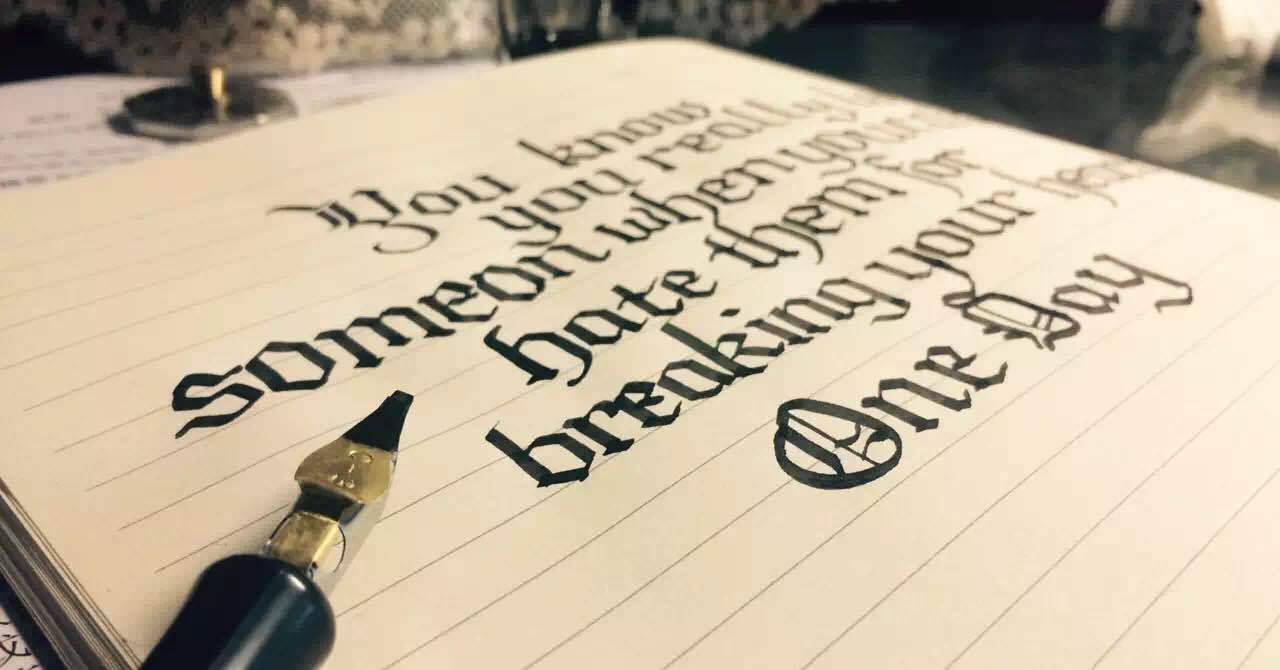 You know
you really
someon when you
hate them for
breaking your
One Day